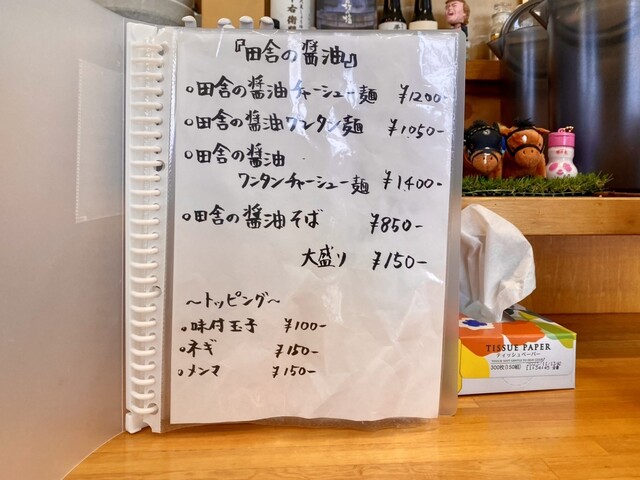 『田舎の醤油』
○田舎の醤油チャーシュー麺 ¥1200-
○田舎の醤油ワンタン麺 ¥1050-
○田舎の醤油
ワンタンチャーシュー麺 ¥1400-
○田舎の醤油そば ¥850-
大盛り ¥150-
〜トッピング〜
○味付玉子 ¥100-
○ネギ ¥150-
○メンマ ¥150-
TISSUE PAPER
ティッシュペーパー